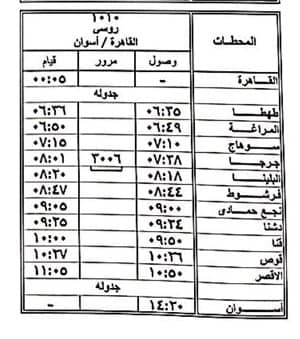 ١٠١٠
روسى
القاهرة / أسوان
المحطات وصول مرور قيام
القاهرة - ٠٠:٠٥
جدوله
طهطا ٠٦:٣٥ ٠٦:٣٦
المراغة ٠٦:٤٩ ٠٦:٥٠
سوهاج ٠٧:١٠ ٠٧:١٥
جرجا ٠٧:٣٨ ٣٠٠٦ ٠٨:٠١
البلينا ٠٨:١٨ ٠٨:٢٠
فرشوط ٠٨:٤٤ ٠٨:٤٧
نجع حمادى ٠٩:٠٠ ٠٩:٠٥
دشنا ٠٩:٢٤ ٠٩:٢٥
قنا ٠٩:٥٠ ١٠:٠٠
قوص ١٠:٢٦ ١٠:٢٧
الأقصر ١٠:٥٠ ١١:٠٥
جدوله
أسوان ١٤:٢٠ -